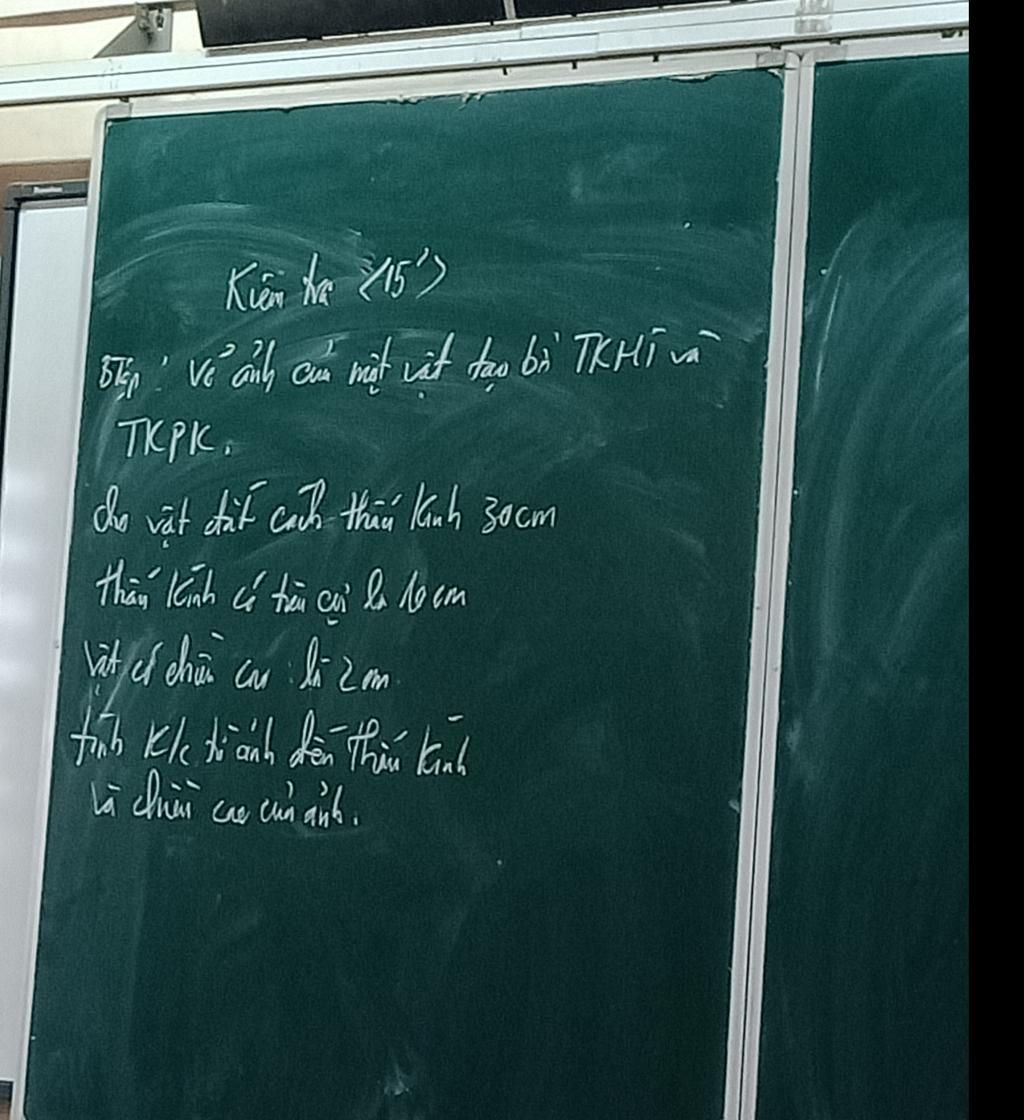 Kiểm tra <15'>
BTập: Vẽ ảnh của một vật tạo bởi TKHT và
TKPK.
cho vật đặt cách thấu kính 30cm
thấu kính có tiêu cự là 10cm
Vật có chiều cao là 2cm
tính K/c từ ảnh đến thấu kính
và chiều cao của ảnh.